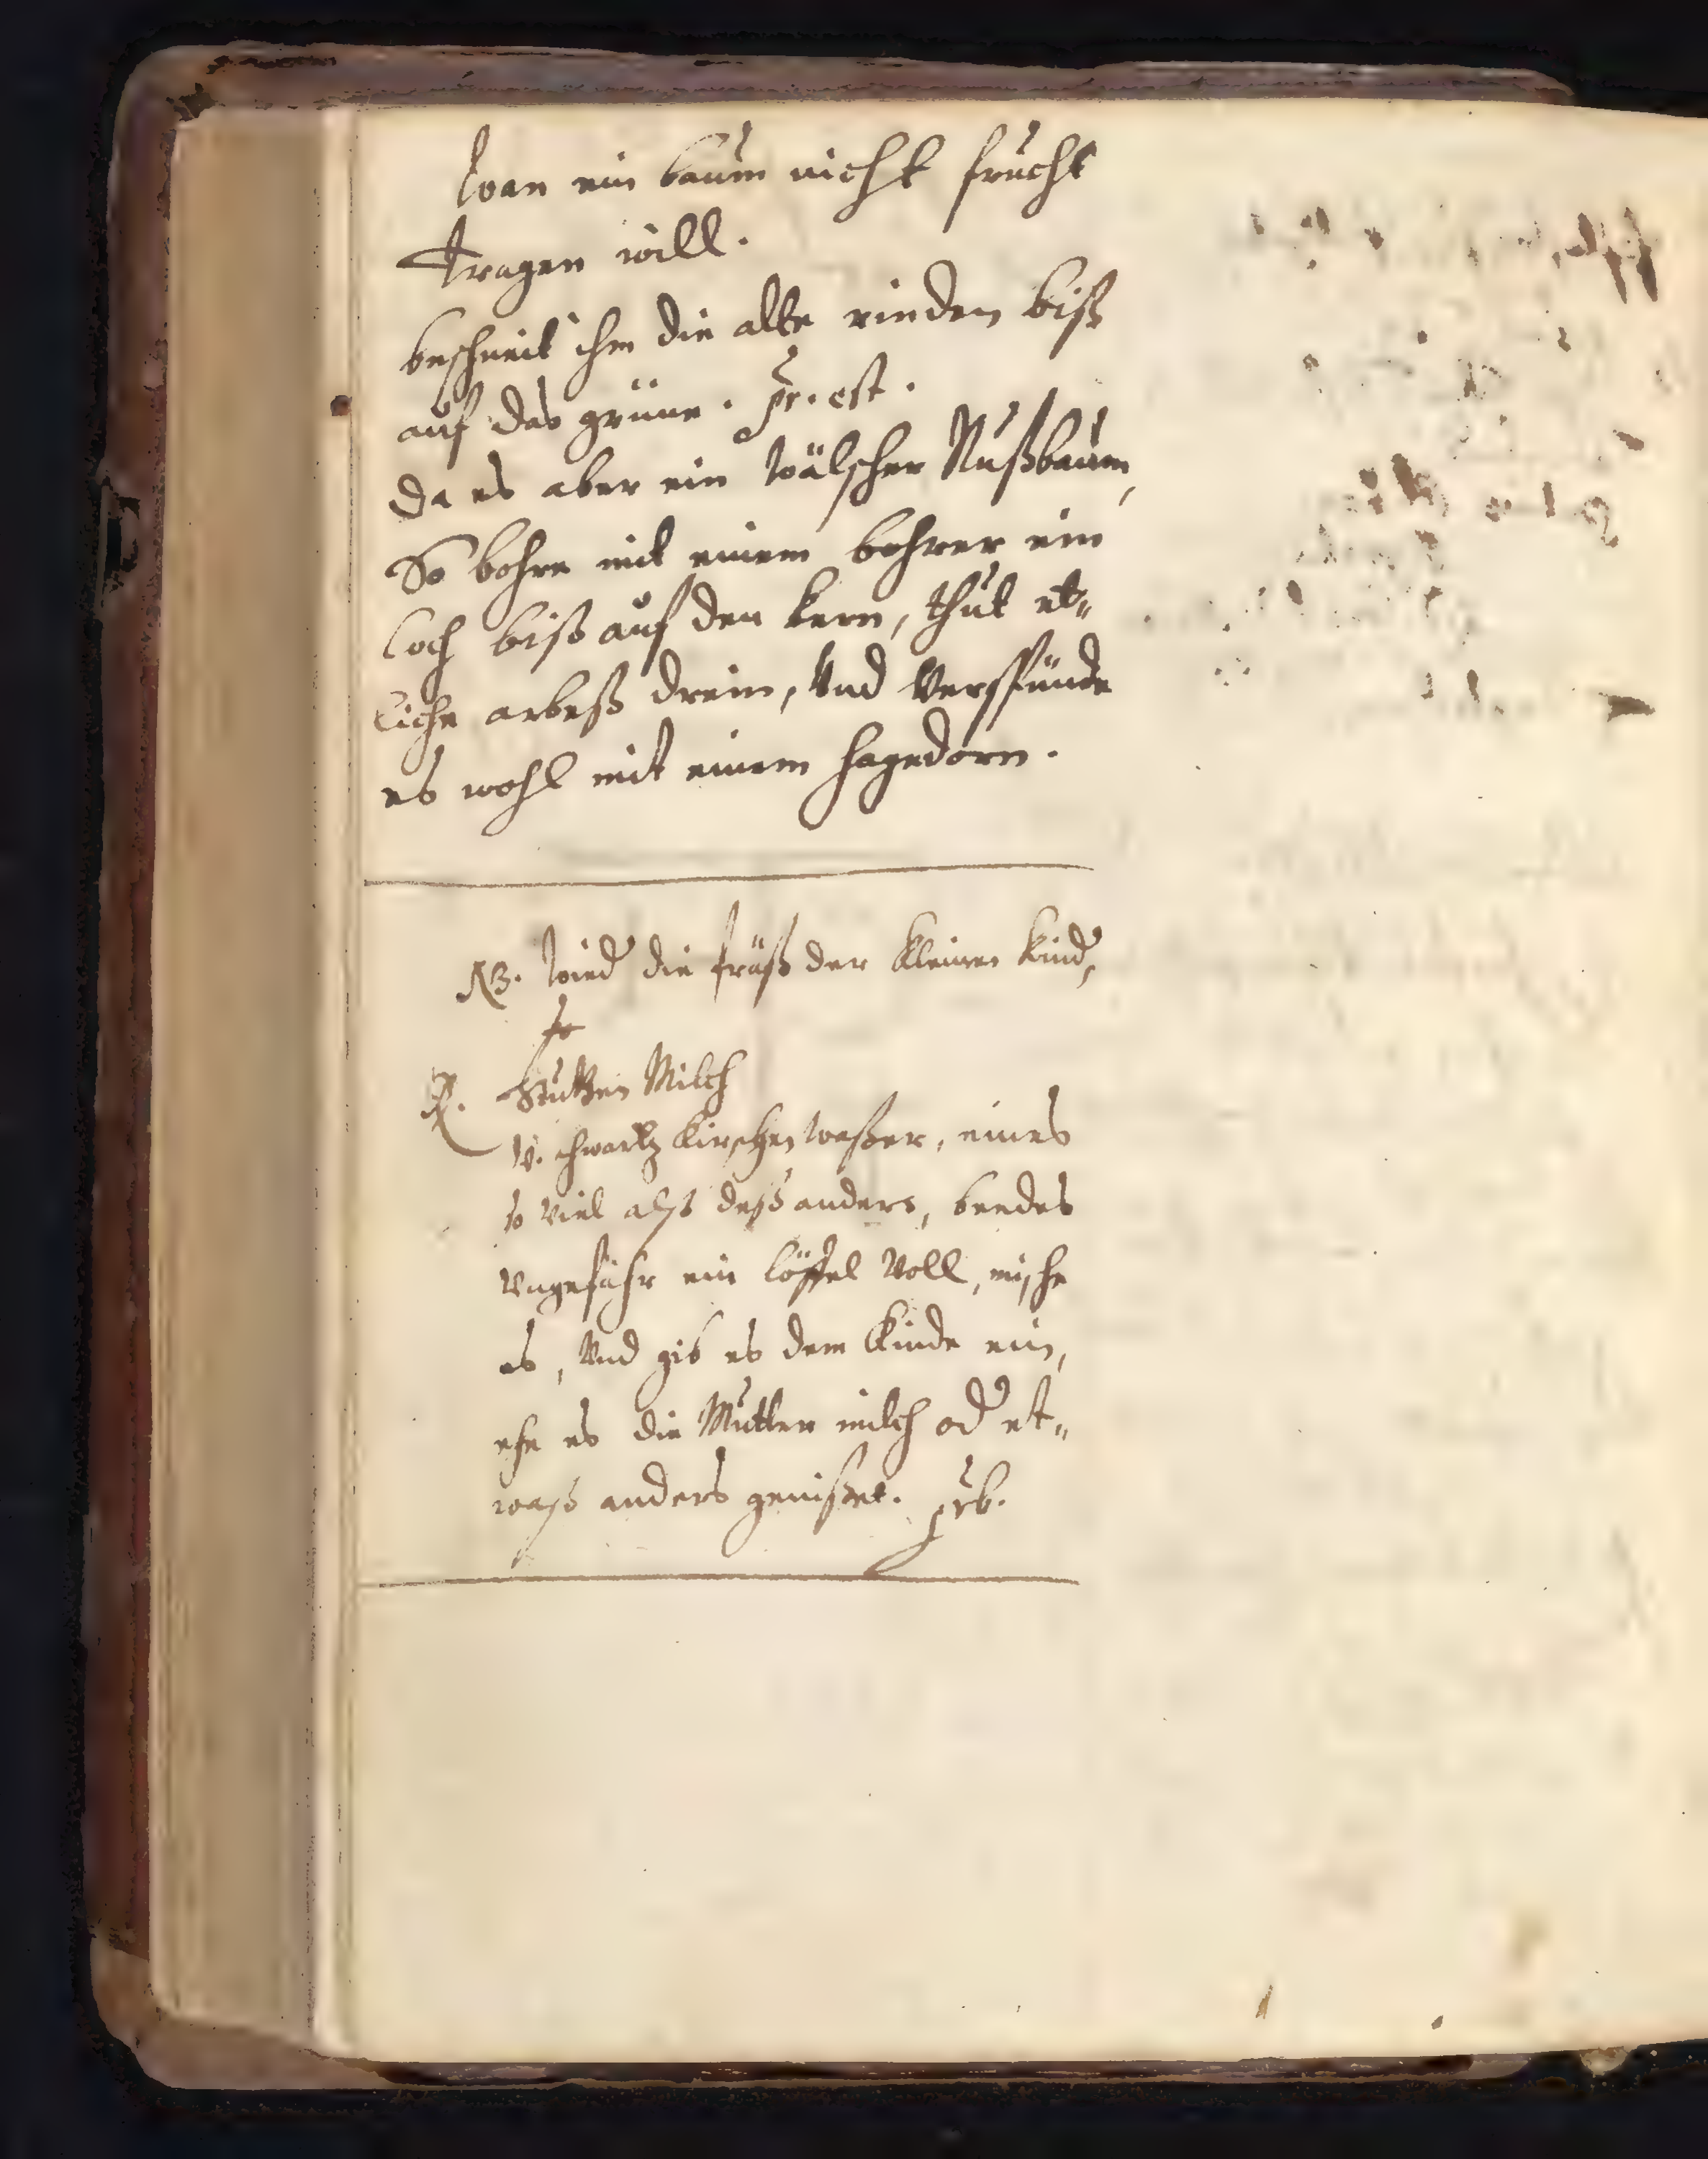 Wan ein baum nicht frucht
tragen will.
beschneit ihm die alte rinden biß
auf das grüne. pr. est.
Da es aber ein wälscher Nußbaum,
So bohre mit einem bohrer ein
loch biß auf den kern, thut et„
liche arbeß drein, Und Verspünde
es wohl mit einem hagedorn.
NB. Wied die fräß der kleinen kind,
℞. Stutten Milch
V. schwartz kirschen waßer, eines
so viel alß deß anders, beedes
Ungefähr ein löffel Voll, mische
es, Und gib es dem kinde ein,
ehe es die Mutter milch od et„
waß anders genißet.